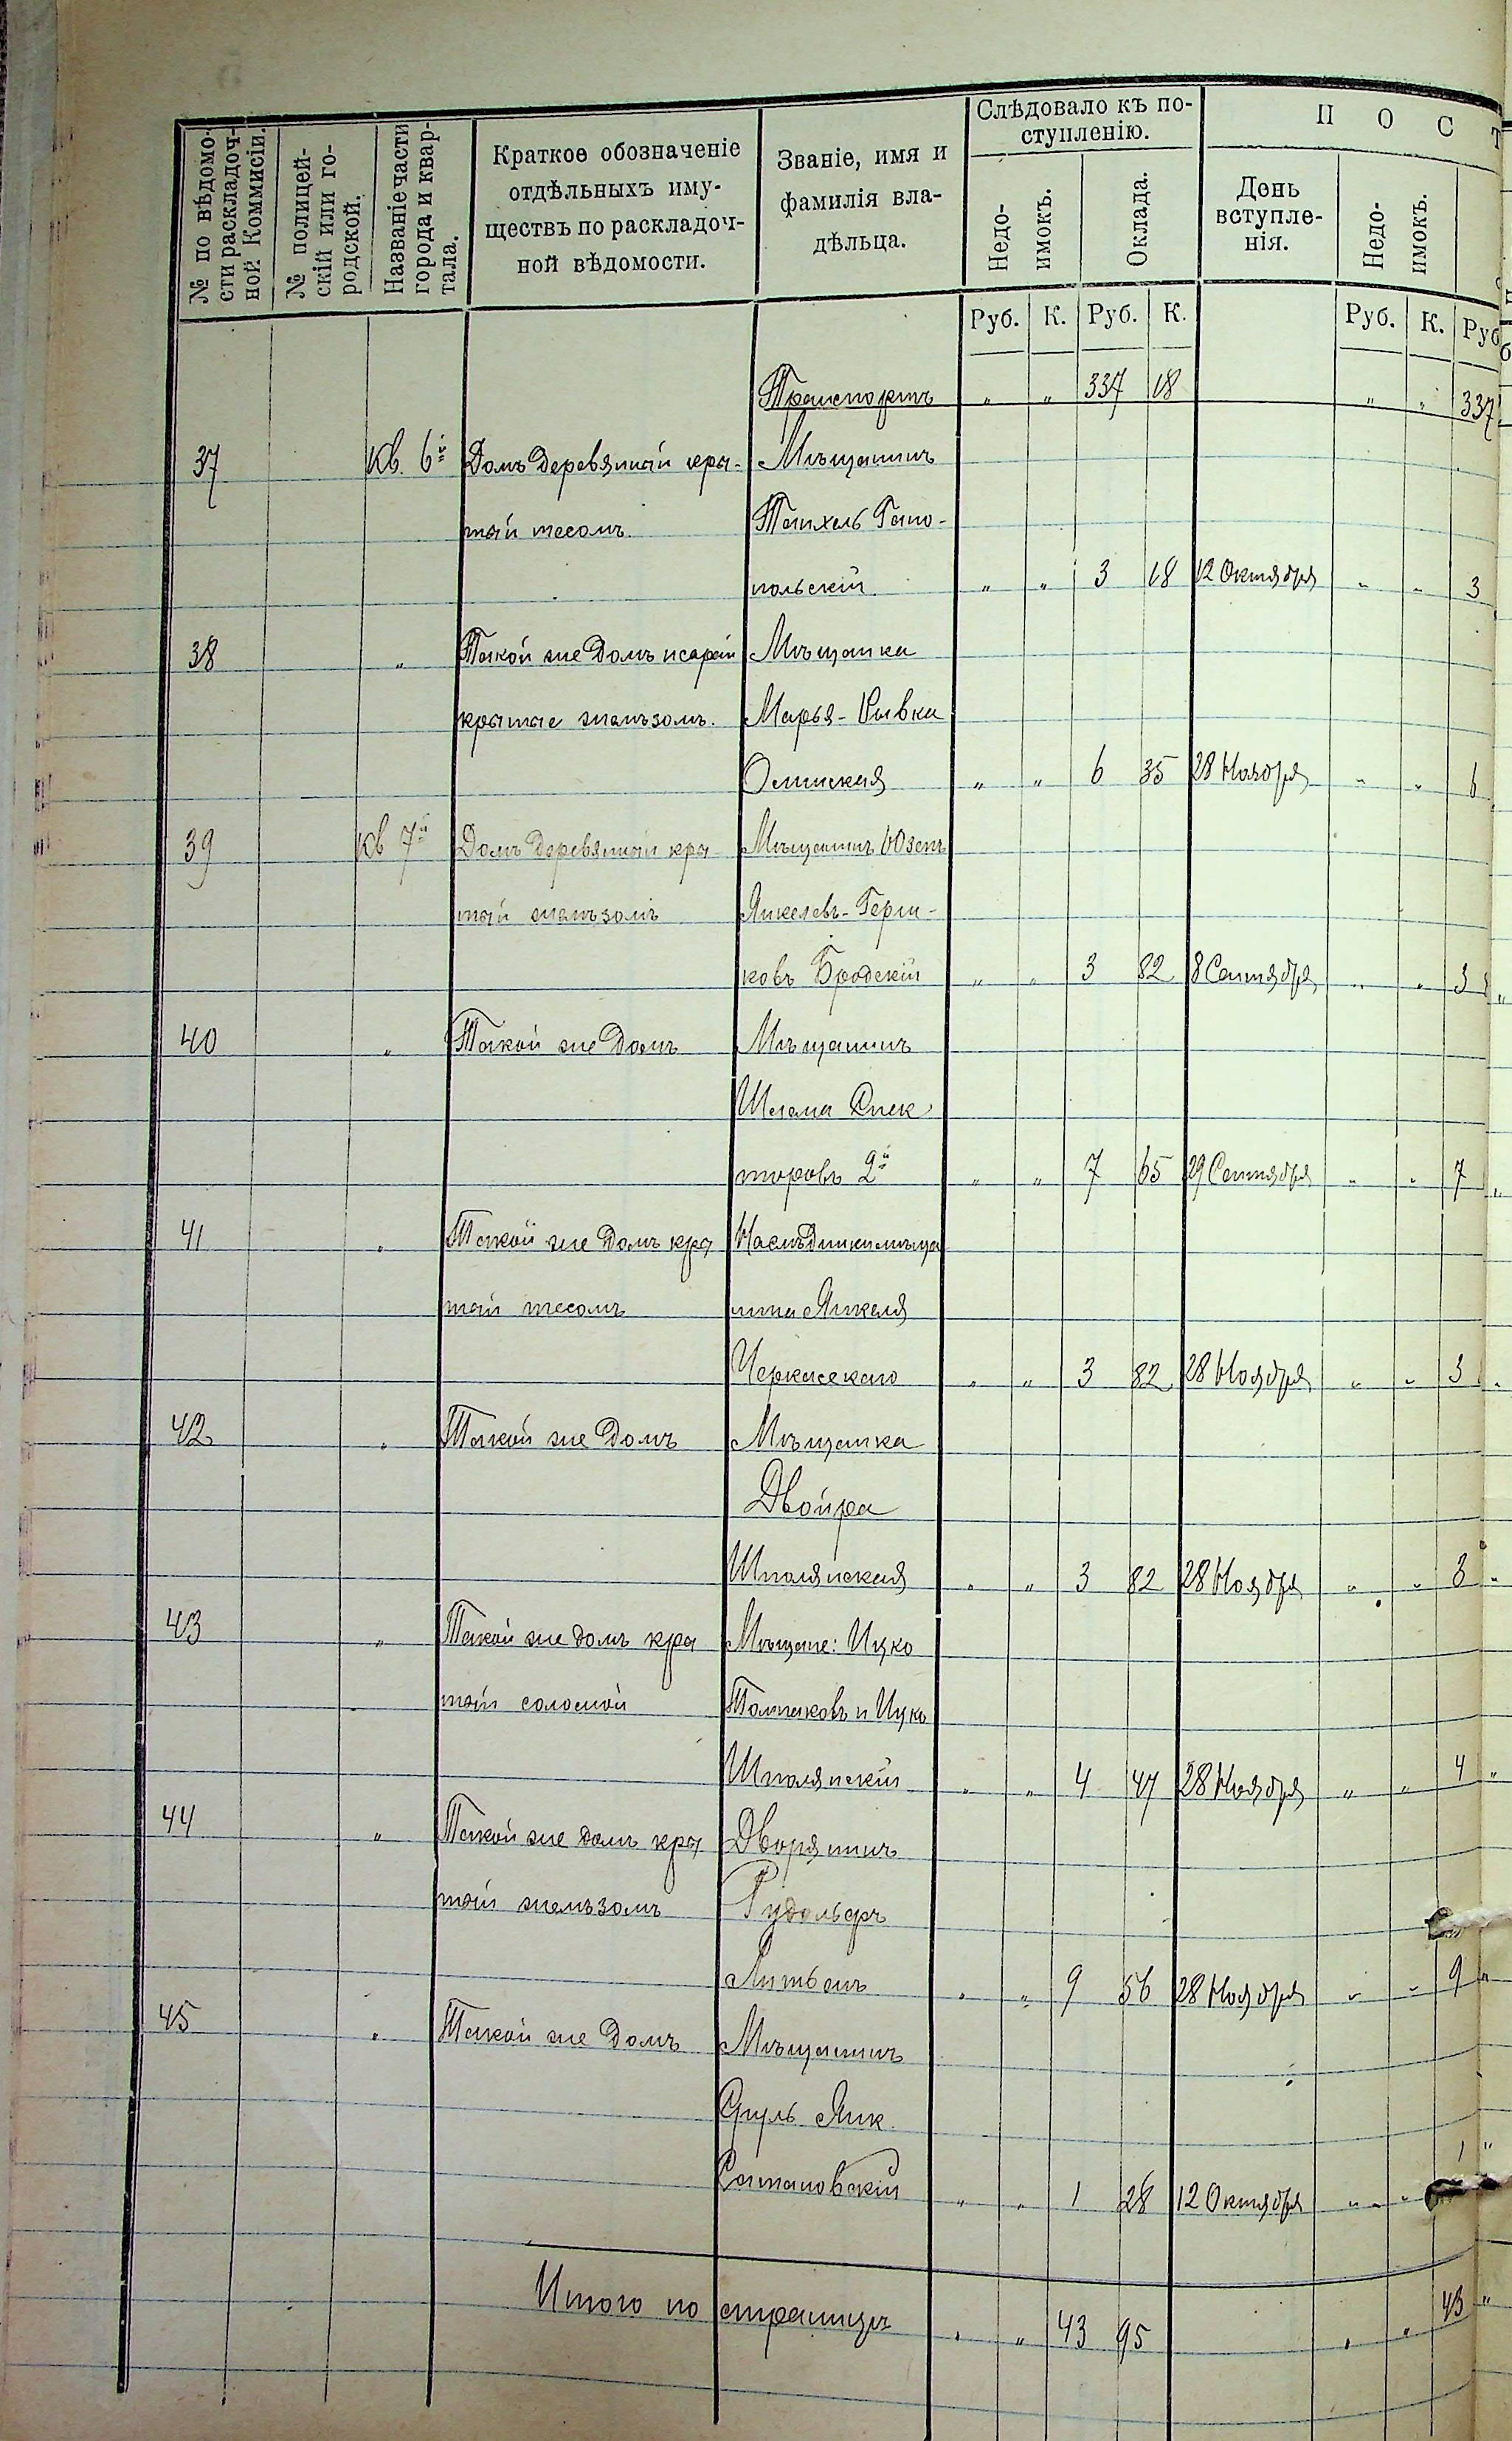 № по вѣдомо-
сти раскладоч-
ной Коммисіи.
№ полицей-
скій или го-
родской.
Названіе части
города и квар-
тала.
Краткое обозначеніе
отдѣльныхъ иму-
ществъ по раскладоч-
ной вѣдомости.
Званіе, имя и
фамилія вла-
дѣльца.
Слѣдовало къ по-
ступленію.
Недо-
имокъ.
Оклада.
П О С Т
День
вступле-
нія.
Недо-
имокъ.
Руб. К. Руб. К. Руб. К. Руб
Транспортъ " " 337 18 " " 337
37 Кв. 6й Домъ деревянный кры- Мѣщанинъ
тый тесомъ
польскій " " 3 18 12 Октября " " 3
38 " Такой же домъ и сарай Мѣщанка
крытые желѣзомъ. Марья-Рывка
" " 6 35 28 Ноября " " 6
39 Кв 7й Домъ деревянный кры Мѣщанинъ Юзепъ
тый желѣзомъ Янкелевъ-Герш-
ковъ Бродскій " " 3 82 8 Сентября " " 3 "
40 " Такой же домъ Мѣщанинъ
Шлема Спек
торовъ 2й " " 7 65 29 Сентября " " 7 "
41 " Такой же домъ кры Наслѣдники мѣща
тый тесомъ нина Янкеля
Черкасскаго " " 3 82 28 Ноября " " 3 "
42 " Такой же домъ Мѣщанка
Двойра
Шполянская " " 3 82 28 Ноября " " 3 "
43 " Такой же домъ кры Мѣщане: Ицко
тый соломой и Ицко
Шполянскій " " 4 47 28 Ноября " " 4 "
44 " Такой же домъ кры Дворянинъ
тый желѣзомъ Рудольфъ
" " 9 56 28 Ноября " " 9 "
45 " Такой же домъ Мѣщанинъ
Сруль Янк.
Сатановскій " " 1 28 12 Октября " " 1 "
Итого по страницѣ " " 43 95 " " 43 "